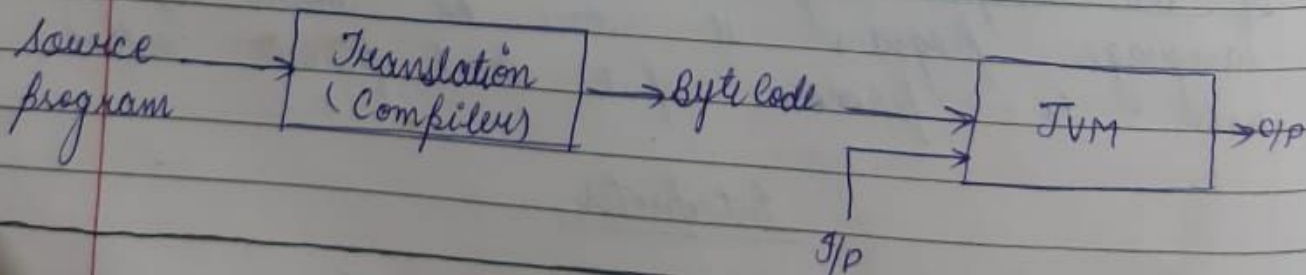 Source
program
Translation
(Compiler)
Byte Code
JVM
O/P
I/P